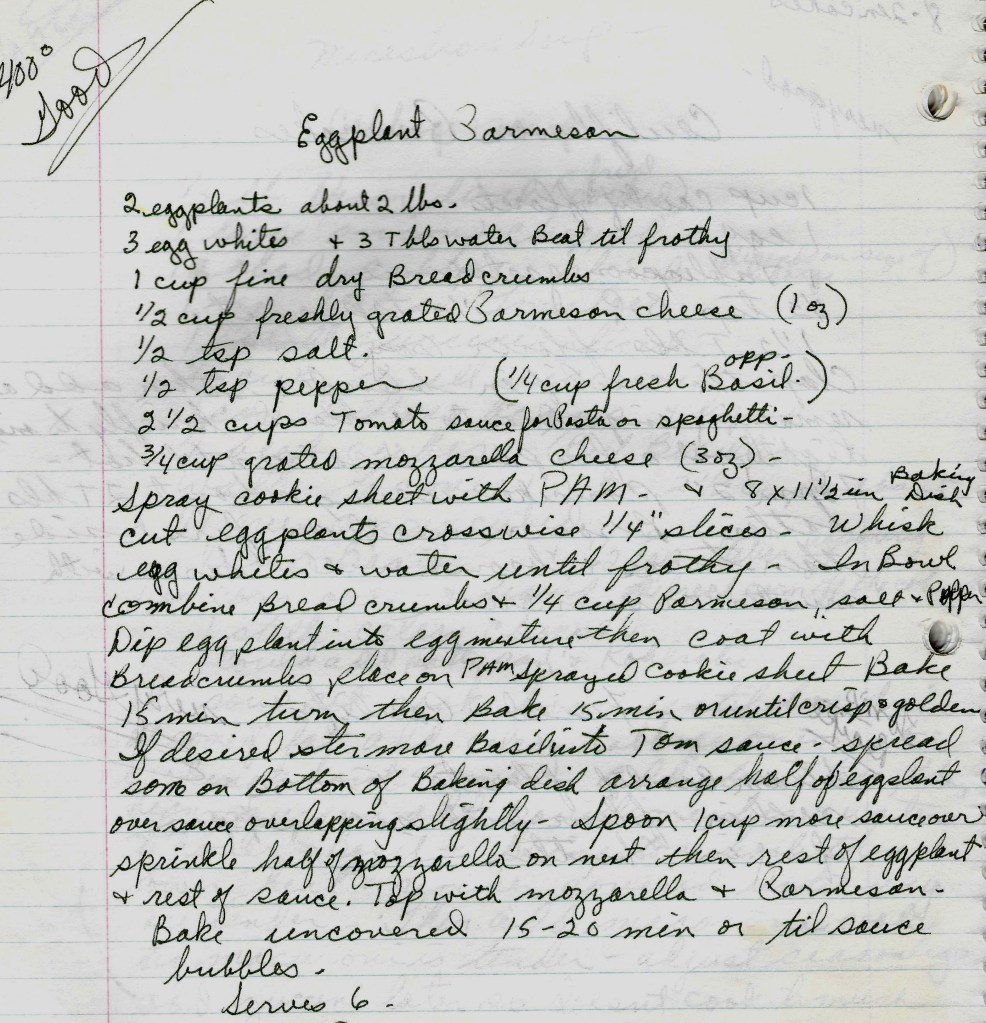 400°
Good
Eggplant Parmeson
2 eggplants about 2 lbs.
3 egg whites + 3 Tbls water Beat til frothy
1 cup fine dry Breadcrumbs
1/2 cup freshly grated Parmeson cheese (1 oz)
1/2 tsp salt.
1/2 tsp pepper (1/4 cup fresh Basil. opp-)
2 1/2 cups Tomato sauce for Pasta or spaghetti-
3/4 cup grated mozzarella cheese (3 oz) -
Spray cookie sheet with PAM - & 8 x 11 1/2 in Baking Dish
cut eggplants crosswise 1/4" slices - Whisk
egg whites & water until frothy - In Bowl
combine Bread crumbs + 1/4 cup Parmeson, salt + Pepper
Dip eggplant into egg mixture then coat with
Breadcrumbs, place on PAM sprayed cookie sheet Bake
15 min turn, then Bake 15 min or until crisp & golden
If desired ster more Basil into Tom sauce - spread
some on Bottom of Baking dish arrange half of eggplant
over sauce overlapping slightly - Spoon 1 cup more sauce over
sprinkle half of mozzarella on next then rest of eggplant
+ rest of sauce. Top with mozzarella + Parmeson -
Bake uncovered 15-20 min or til sauce
bubbles.
Serves 6 -